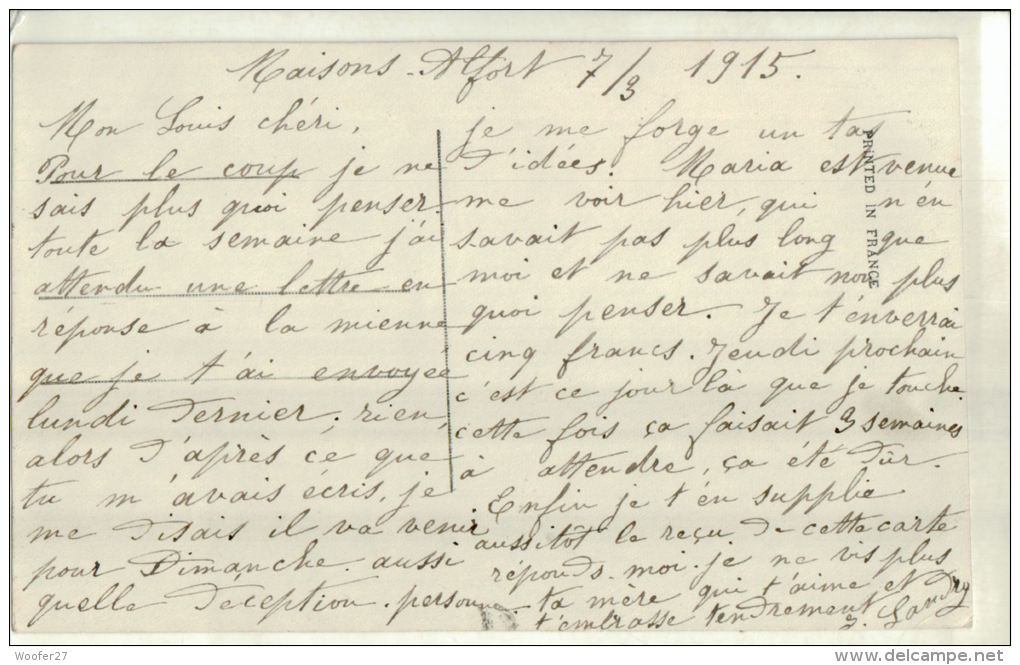 Maisons-Alfort 7/3 1915.
Mon Louis chéri,
Pour le coup je ne
sais plus quoi penser.
toute la semaine j'ai
attendu une lettre en
réponse à la mienne
que je t'ai envoyée
lundi dernier, rien,
alors d'après ce que
tu m'avais écris, je
me disais il va venir
pour Dimanche. aussi
quelle déception. personne
je me forge un tas
d'idées. Maria est venue
me voir hier, qui n'én
savait pas plus long que
moi et ne savait non plus
quoi penser. Je t'énverrai
cinq francs. Jeudi prochain
c'est ce jour là que je touche.
cette fois ça faisait 3 semaines
à attendre, ça été dûr.
Enfin je t'én supplie
aussitôt le reçu de cette carte
réponds-moi. je ne vis plus
ta mère qui t'aime et
t'embrasse tendrement
Landry
PRINTED IN FRANCE
Woofer27
delcampe.net